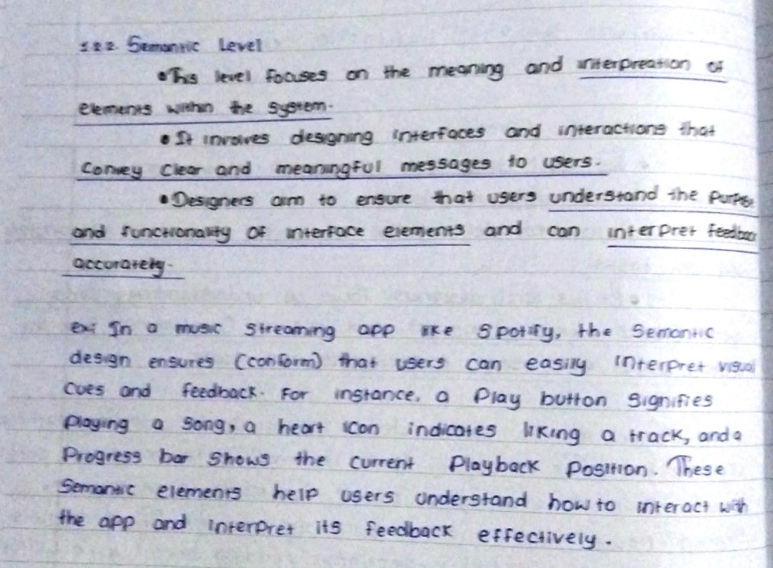 1.2.2. Semantic Level
• This level focuses on the meaning and interpretation of
elements within the system.
• It involves designing interfaces and interactions that
convey clear and meaningful messages to users.
• Designers aim to ensure that users understand the purpose
and functionality of interface elements and can interpret feedback
accurately.
ex: In a music streaming app like Spotify, the semantic
design ensures (conform) that users can easily interpret visual
cues and feedback. For instance, a play button signifies
playing a song, a heart icon indicates liking a track, and a
progress bar shows the current playback position. These
semantic elements help users understand how to interact with
the app and interpret its feedback effectively.